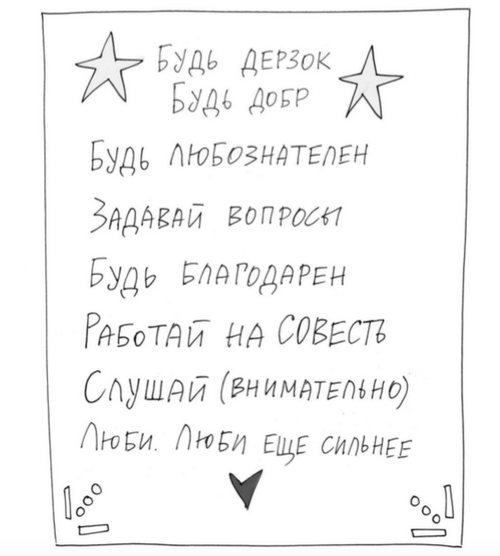 Будь дерзок
Будь добр
Будь любознателен
Задавай вопросы
Будь благодарен
Работай на совесть
Слушай (внимательно)
Люби. Люби еще сильнее